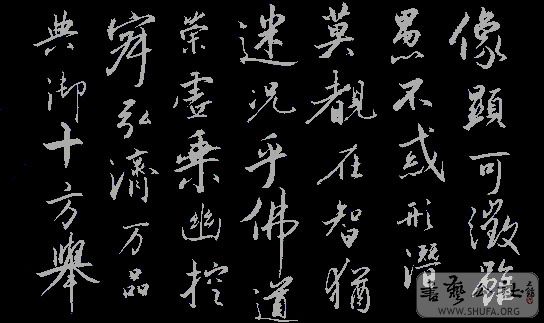 像顯可徵雖
愚不惑形潛
莫覩在智猶
迷況乎佛道
崇虛乘幽控
寂弘濟万品
典御十方舉
書藝公社
WWW.SHUFA.ORG